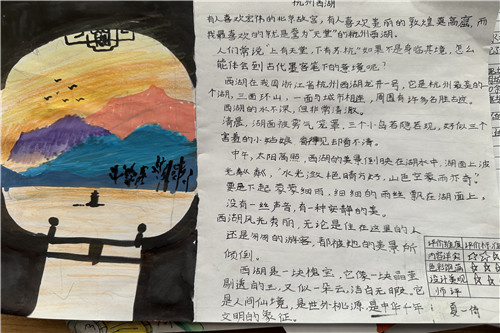 杭州西湖
有人喜欢宏伟的北京故宫，有人喜欢美丽的敦煌莫高窟，而
我最喜欢的就是誉为"天堂"的杭州西湖。
人们常说"上有天堂，下有苏杭。"如果不是身临其境，怎么
能体会到古代墨客笔下的意境呢？
西湖在我国浙江省杭州西湖龙井一号，它是杭州最美的一
个湖，三面环山，一面与城市相连，周围有许多名胜古迹。
西湖的水不深，但非常清澈。
清晨，湖面被雾气笼罩，三个小岛若隐若现，好似三个
害羞的小姑娘
中午，太阳高照，西湖的美景倒映在湖水中，湖面上波
光粼粼，"水光潋滟晴方好，山色空蒙雨亦奇。"
要是下起蒙蒙细雨，细细的雨丝飘在湖面上，
没有一丝声音，有一种安静的美。
西湖风光秀丽，无论是住在这里的人
还是匆匆的游客，都被她的美景所
倾倒。
西湖是一块瑰宝，它像一块晶莹
剔透的玉，又似一朵云，洁白无瑕，它
是人间仙境，是世外桃源，是中华千年
文明的象征。
评价维度 评价标准
内容详实 ☆☆
色彩饱满 ☆☆
设计美观 ☆☆
师评
夏一倩